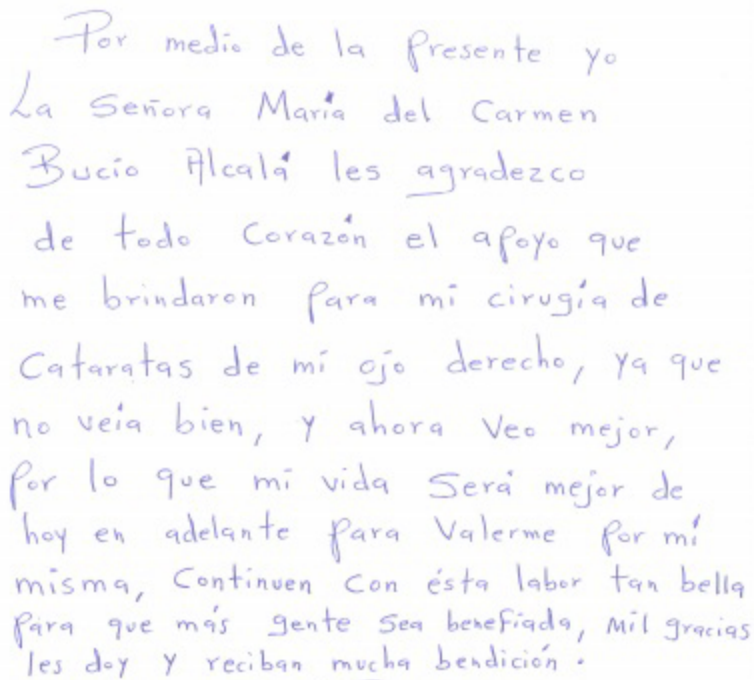 Por medio de la presente yo
La Señora María del Carmen
Bucio Alcalá les agradezco
de todo Corazón el apoyo que
me brindaron para mi cirugía de
Cataratas de mi ojo derecho, ya que
no veía bien, y ahora veo mejor,
por lo que mi vida Será mejor de
hoy en adelante para Valerme por mí
misma, Continuen Con ésta labor tan bella
para que más gente Sea benefiada, mil gracias
les doy y reciban mucha bendición.